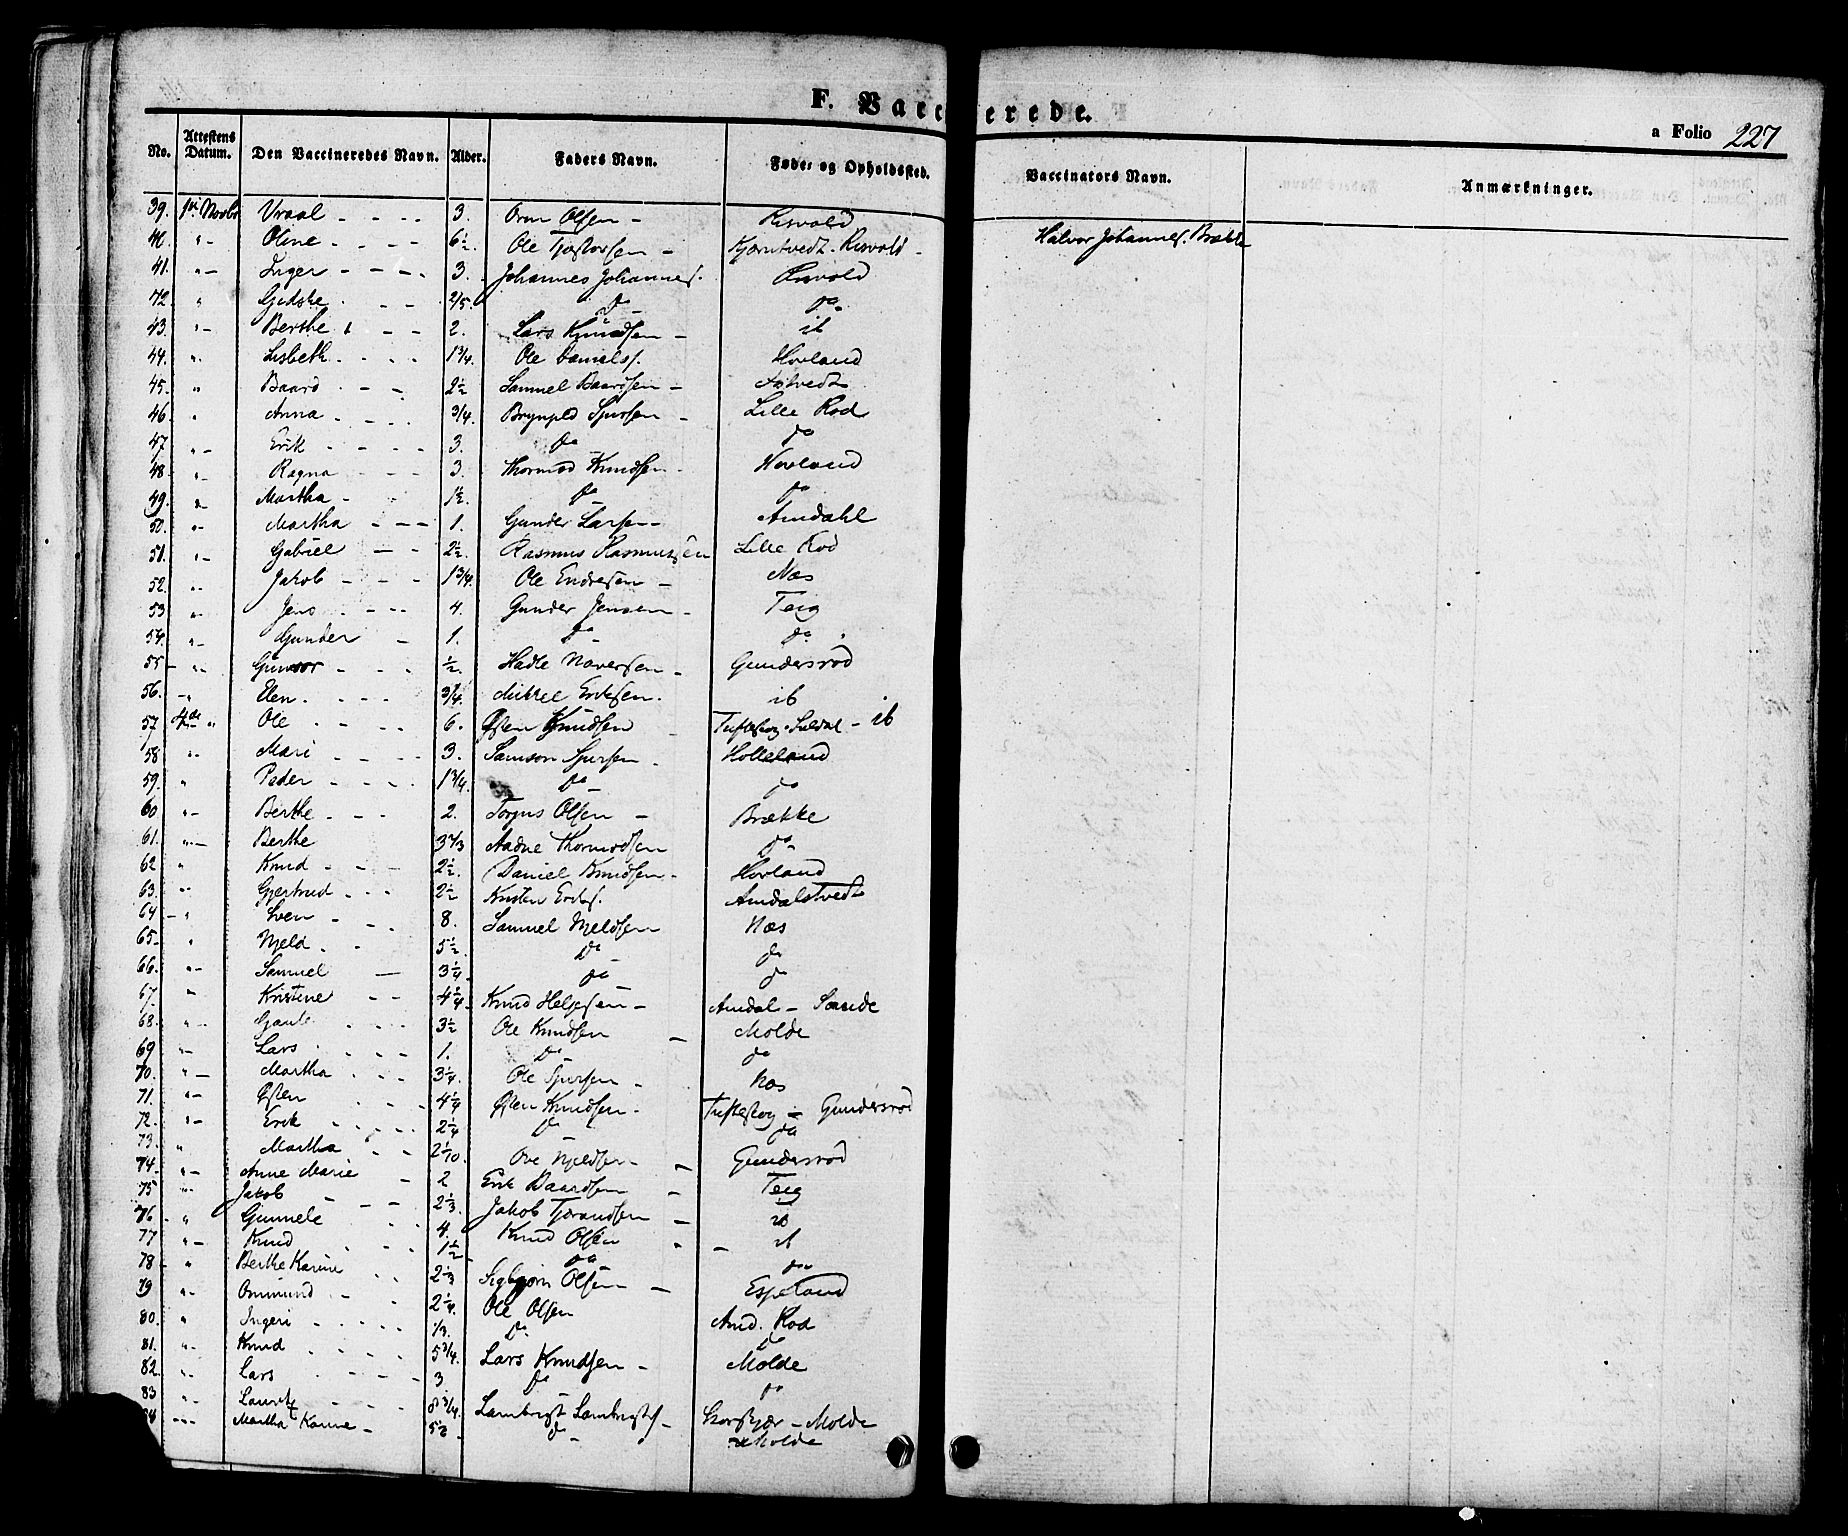 F. Vaccinerede.
a Folio 227
No. Attestens Datum. Den Vaccineredes Navn. Alder. Faders Navn. Føde= og Opholdssted. Vaccinators Navn. Anmærkninger.
39. Novbr Vraal - - - - 3. Orm Olsen - Risvold
40. "- Oline - - - - 6½. Ole Risvold - Halvor Johannes. Brække
41. "- Inger - - - - 3. Johannes Johannes. Risvold
42. " Gidske - - - 2/5. do do
43. "- Berthe - - - 2. Lars Knudsen - ib
44. ". Lisbeth - - - - 1¾. Ole Daniels. Hovland
45. " Baard - - - 2½ Samuel Baardsen -
46. " Anna - - - - ¾. Sjursen - Lille Rød
47 "- Erik - - - - 3. do do
48. "- Ragna - - - 3. Thormod Knudsen - Hovland
49. " Martha - - 1½. do do
50. "- Martha - - - 1. Gunder Larsen - Amdahl
51. "- Gabriel - - 2½. Rasmus Rasmussen Lille Rød
52. ". Jakob - - - 1¾. Ole Endresen - Næs
53 ". Jens - - - 4. Gunder Jensen - Teig
54. "- Gunder - 1. do do
55 - "- - - - ½. Hadle - Gundersrød
56. -" Elen - - - - ¾. Mikkel Eriksen. ib
57 4de " Ole - - - - 6. Østen Knudsen Suldal - ib
58 ". Mari - - - - 3. Samson Sjursen . Holleland
59. " Peder - - - - 1¾. do do
60 "- Berthe - - - 2. Torjus Olsen - Brække
61. "- Berthe Aadne Thormodsen do
62 " Knud - - - - 2½. Daniel Knudsen - Hovland
63. " Gjertrud - - - 2½ Kristen Amdalstvedt
64 - " Sven - - - 8. Samuel Njeldsen Næs
65. " Njeld - - - 5½. do do
66. "- Samuel - 3¼. do do
67. "- Kristine - - 4¼. Knud Helgesen - Amdal - Sande
68. "- Gaute - - - 3½ Ole Knudsen - Molde
69 "- Lars - - - - 1. do do
70. "- Martha - - - 3¼. Ole Sjursen - Næs
71. "- Østen - - - 4¼ Østen Knudsen - Gundersrød
72. "- Erik - - - - 2¼ do do
73. " Martha - - 2 1/10. Ove Njeldsen - Gundersrød
74. "- Anne Marie - 2 Erik Baardsen - Teig
75 " Jakob - - - 2⅓. Jakob Tjerandsen - ib
76 - " Gunnele - - 4. Knud Olsen - - ib
77 "- Knud - - - 1½ do do
78 - " Berthe Karine - - 2⅓ Sigbjørn Olsen - Espeland
79 "- Ommund - - 2¼. Ole Olsen Amd. Rød
80. " Ingeri - - - - ⅓. do do
81. "- Knud - - - - 5¾. Lars Knudsen - Molde
82. "- Lars - - - - 3 do do
83 "- Lauritz - - - 8¾. Lambrigt Lambrigts. - - Molde
84 "- Martha Karine - 5½ do - Molde